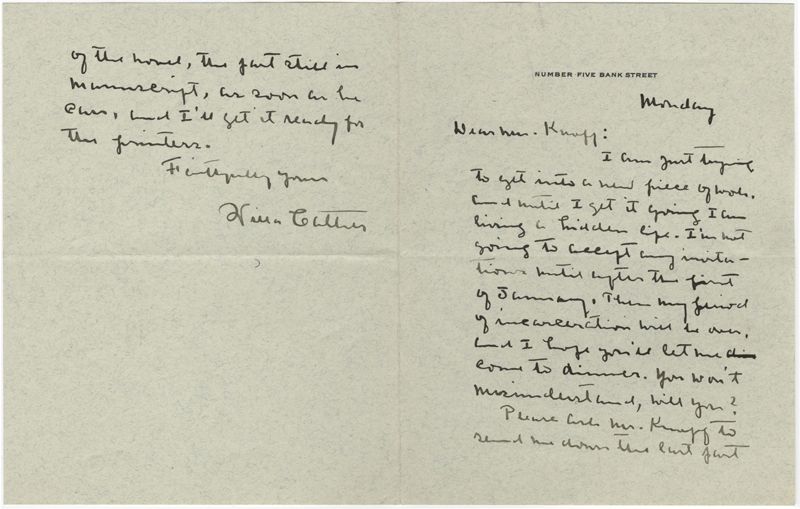 NUMBER FIVE BANK STREET
Monday
Dear Mrs. Knopf:
I am just trying
to get into a new piece of work,
and until I get it going I am
living a hidden life. I'm not
going to accept any invita-
tions until after the first
of January. Then my period
of incarceration will be over,
and I hope you'll let me
come to dinner. You won't
misunderstand, will you?
Please ask Mr. Knopf to
send me down the last part
of the novel, the part still in
manuscript, as soon as he
can, and I'll get it ready for
the printers.
Faithfully yours
Willa Cather